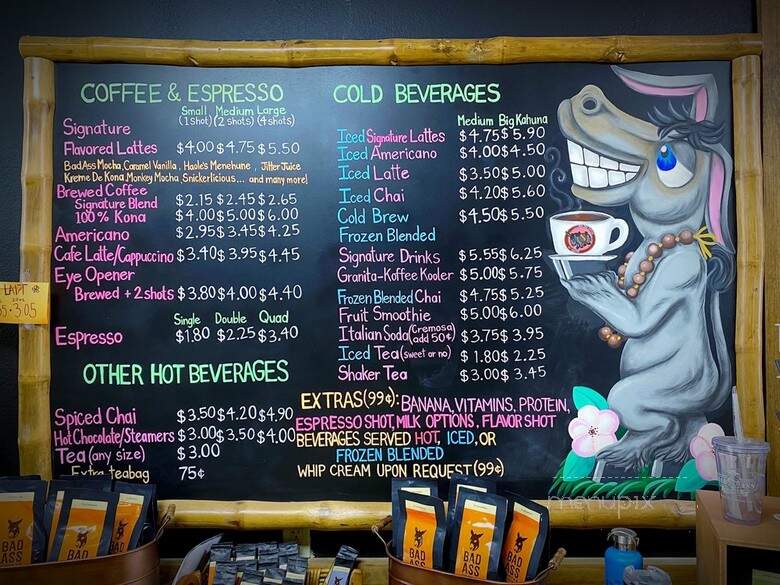 COFFEE & ESPRESSO
Small Medium Large
(1 shot) (2 shots) (4 shots)
Signature
Flavored Lattes $4.00 $4.75 $5.50
BadAss Mocha, Caramel Vanilla, Haole's Menehune, Jitter Juice
Kreme De Kona, Monkey Mocha, Snickerlicious... and many more!
Brewed Coffee
Signature Blend $2.15 $2.45 $2.65
100% Kona $4.00 $5.00 $6.00
Americano $2.95 $3.45 $4.25
Cafe Latte/Cappuccino $3.40 $3.95 $4.45
Eye Opener
Brewed + 2 shots $3.80 $4.00 $4.40
Single Double Quad
Espresso $1.80 $2.25 $3.40
OTHER HOT BEVERAGES
Spiced Chai $3.50 $4.20 $4.90
Hot Chocolate/Steamers $3.00 $3.50 $4.00
Tea (any size) $3.00
Extra teabag 75¢
COLD BEVERAGES
Medium Big Kahuna
Iced Signature Lattes $4.75 $5.90
Iced Americano $4.00 $4.50
Iced Latte $3.50 $5.00
Iced Chai $4.20 $5.60
Cold Brew $4.50 $5.50
Frozen Blended
Signature Drinks $5.55 $6.25
Granita-Koffee Kooler $5.00 $5.75
Frozen Blended Chai $4.75 $5.25
Fruit Smoothie $5.00 $6.00
Italian Soda (Cremosa add 50¢) $3.75 $3.95
Iced Tea (sweet or no) $1.80 2.25
Shaker Tea $3.00 $3.45
EXTRAS (99¢): BANANA, VITAMINS, PROTEIN,
ESPRESSO SHOT, MILK OPTIONS, FLAVOR SHOT
BEVERAGES SERVED HOT, ICED, OR
FROZEN BLENDED
WHIP CREAM UPON REQUEST (99¢)
menupix
5.305
BAD
ASS
BAD
ASS
BAD
ASS
BAD
ASS
BAD
ASS
BAD
ASS